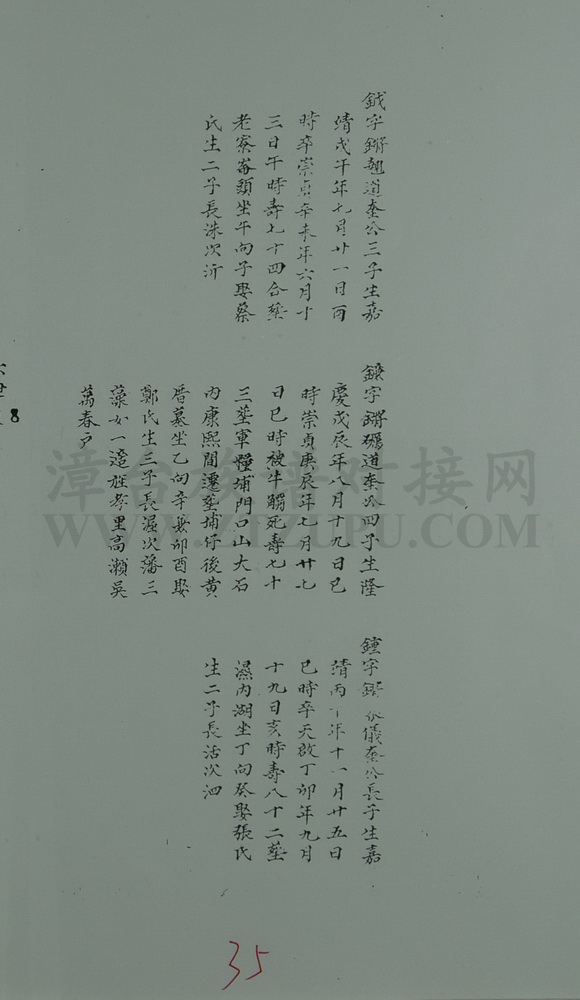 鉞字鏘翹道奎公三子生嘉
靖戊午年七月廿一日酉
時卒崇貞辛未年六月十
三日午時壽七十四合塟
老寮崙頭坐午向子娶蔡
氏生二子長洙次沂
鑛字鏘礪道奎公四子生隆
慶戊辰年八月十九日巳
時崇貞庚辰年七月廿七
日巳時被牛觸死壽七十
三塟軍糧埔門口山大石
內康熙間遷塟埔仔後黃
厝墓坐乙向辛兼卯酉娶
鄭氏生三子長渥次藩三
藻女一適旌孝里高瀨吳
萬春户
鍾字 儀奎公長子生嘉
靖丙 年十一月廿五日
巳時卒天啟丁卯年九月
十九日亥時壽八十二塟
濕內湖坐丁向癸娶張氏
生二子長活次泗
8
漳台族譜对接网
WWW.ZTZUPU.COM
35